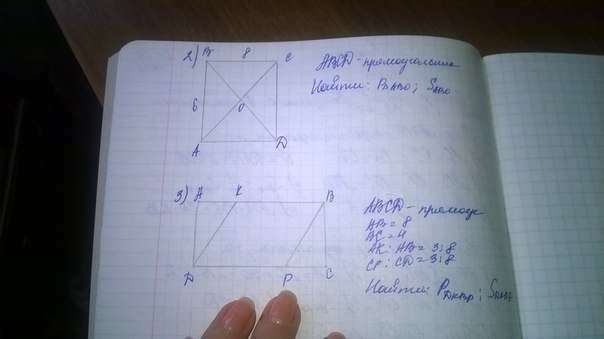 2) B 8 C
6 O
A D
ABCD - прямоугольник
Найти: P ABO; S ABO
3) A K B
D P C
ABCD - прямоуг
AB = 8
BC = 4
AK : AB = 3 : 8
CP : CD = 3 : 8
Найти: P DKBP; S